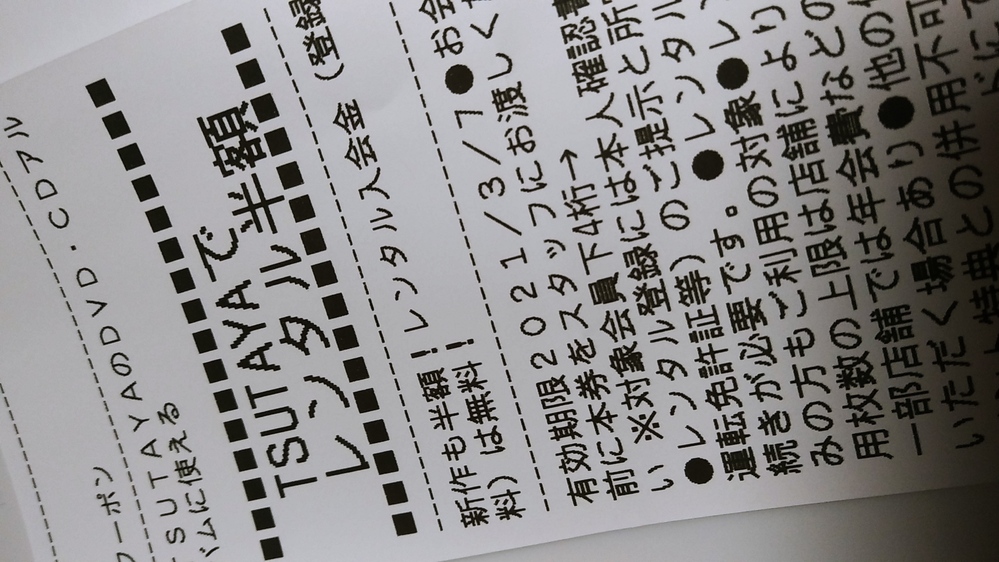 クーポン
TSUTAYAのDVD・CDアル
バムに使える
TSUTAYAで
レンタル半額
新作も半額！レンタル入会金（登録
料）は無料！
有効期限２０２１／３／７●お会
前に本券をスタッフにお渡しくだ
い ※対象会員下4桁→
●レンタル登録には本人確認書
運転免許証等）のご提示と所
続きが必要です。●レンタル
みの方もご利用の対象●レン
用枚数の上限は店舗により
一部店舗では年会費などの
いただく場合あり●他の
特典との併用不可